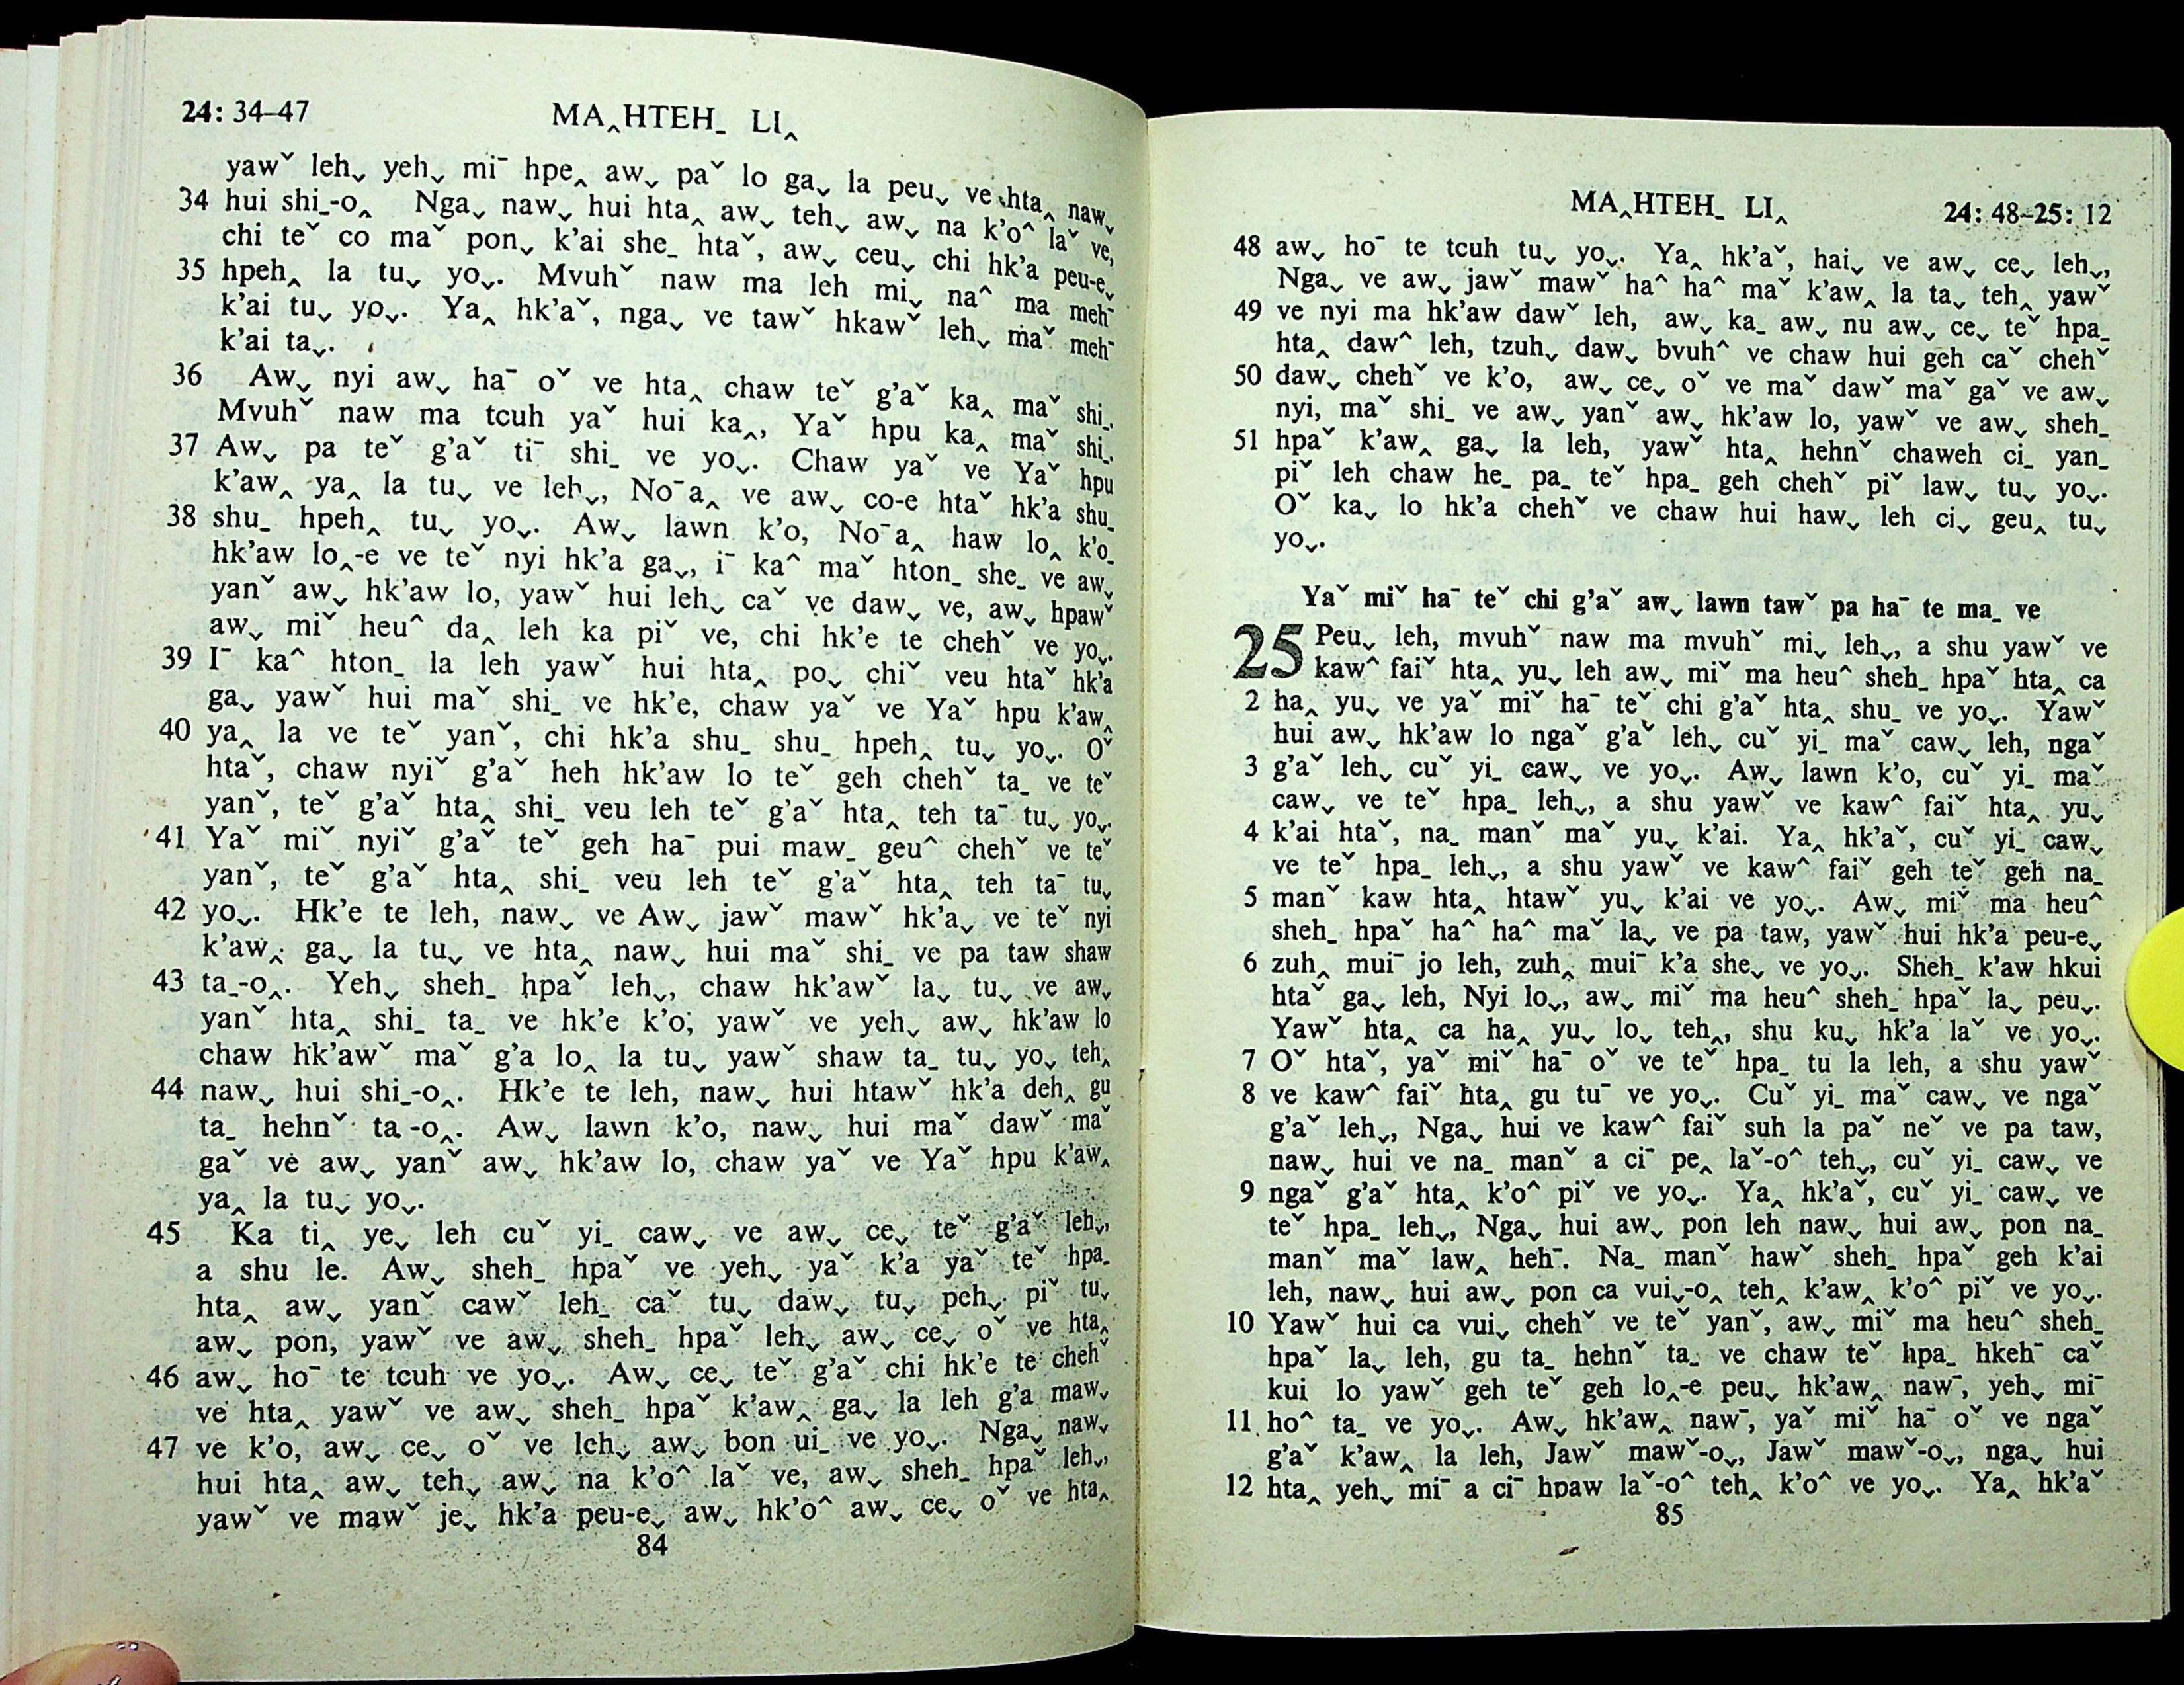 24: 34–47 MA‸HTEH_ LI‸
yawˇ leh⌄ yeh⌄ miˉ hpe‸ aw⌄ paˇ lo ga⌄ la peu⌄ ve hta‸ naw⌄
34 hui shi_-o‸ Nga⌄ naw⌄ hui hta‸ aw⌄ teh⌄ aw⌄ na k’o^ laˇ ve,
chi teˇ co maˇ pon⌄ k’ai she_ htaˇ, aw⌄ ceu⌄ chi hk’a peu-e⌄
35 hpeh‸ la tu⌄ yo⌄. Mvuhˇ naw ma leh mi⌄ na^ ma mehˉ
k’ai tu⌄ yo⌄. Ya‸ hk’aˇ, nga⌄ ve tawˇ hkawˇ leh⌄ maˇ mehˉ
k’ai ta⌄.
36 Aw⌄ nyi aw⌄ haˉ oˇ ve hta‸ chaw teˇ g’aˇ ka‸ maˇ shi_.
Mvuhˇ naw ma tcuh yaˇ hui ka‸, Yaˇ hpu ka‸ maˇ shi_.
37 Aw⌄ pa teˇ g’aˇ tiˉ shi_ ve yo⌄. Chaw yaˇ ve Yaˇ hpu
k’aw‸ ya‸ la tu⌄ ve leh⌄, Noˉa‸ ve aw⌄ co-e htaˇ hk’a shu_
38 shu_ hpeh‸ tu⌄ yo⌄. Aw⌄ lawn k’o, Noˉa‸ haw lo‸ k’o_
hk’aw lo‸-e ve teˇ nyi hk’a ga⌄, iˉ ka^ maˇ hton_ she_ ve aw⌄
yanˇ aw⌄ hk’aw lo, yawˇ hui leh⌄ caˇ ve daw⌄ ve, aw⌄ hpawˇ
aw⌄ miˇ heu^ da‸ leh ka piˇ ve, chi hk’e te chehˇ ve yo⌄.
39 Iˉ ka^ hton_ la leh yawˇ hui hta‸ po⌄ chiˇ veu htaˇ hk’a
ga⌄ yawˇ hui maˇ shi_ ve hk’e, chaw yaˇ ve Yaˇ hpu k’aw‸
40 ya‸ la ve teˇ yanˇ, chi hk’a shu_ shu_ hpeh‸ tu⌄ yo⌄. Oˇ
htaˇ, chaw nyiˇ g’aˇ heh hk’aw lo teˇ geh chehˇ ta_ ve teˇ
yanˇ, teˇ g’aˇ hta‸ shi_ veu leh teˇ g’aˇ hta‸ teh taˉ tu⌄ yo⌄.
41 Yaˇ miˇ nyiˇ g’aˇ teˇ geh haˉ pui maw_ geu^ chehˇ ve teˇ
yanˇ, teˇ g’aˇ hta‸ shi_ veu leh teˇ g’aˇ hta‸ teh taˉ tu⌄
42 yo⌄. Hk’e te leh, naw⌄ ve Aw⌄ jawˇ mawˇ hk’a⌄ ve teˇ nyi
k’aw‸ ga⌄ la tu⌄ ve hta‸ naw⌄ hui maˇ shi_ ve pa taw shaw
43 ta_-o‸. Yeh⌄ sheh_ hpaˇ leh⌄, chaw hk’awˇ la⌄ tu⌄ ve aw⌄
yanˇ hta‸ shi_ ta_ ve hk’e k’o, yawˇ ve yeh⌄ aw⌄ hk’aw lo
chaw hk’awˇ maˇ g’a lo‸ la tu⌄ yawˇ shaw ta_ tu⌄ yo⌄ teh‸
44 naw⌄ hui shi_-o‸. Hk’e te leh, naw⌄ hui htawˇ hk’a deh‸ gu
ta_ hehnˇ ta-o‸. Aw⌄ lawn k’o, naw⌄ hui maˇ dawˇ maˇ
gaˇ ve aw⌄ yanˇ aw⌄ hk’aw lo, chaw yaˇ ve Yaˇ hpu k’aw‸
ya‸ la tu⌄ yo⌄.
45 Ka ti‸ ye⌄ leh cuˇ yi_ caw⌄ ve aw⌄ ce⌄ teˇ g’aˇ leh⌄,
a shu le. Aw⌄ sheh_ hpaˇ ve yeh⌄ yaˇ k’a yaˇ teˇ hpa_
hta‸ aw⌄ yanˇ cawˇ leh_ caˇ tu⌄ daw⌄ tu⌄ peh⌄ piˇ tu⌄
aw⌄ pon, yawˇ ve aw⌄ sheh_ hpaˇ leh⌄ aw⌄ ce⌄ oˇ ve hta‸
46 aw⌄ hoˉ te tcuh ve yo⌄. Aw⌄ ce⌄ teˇ g’aˇ chi hk’e te chehˇ
ve hta‸ yawˇ ve aw⌄ sheh_ hpaˇ k’aw‸ ga⌄ la leh g’a maw⌄
47 ve k’o, aw⌄ ce⌄ oˇ ve leh⌄ aw⌄ bon ui_ ve yo⌄. Nga⌄ naw⌄
hui hta‸ aw⌄ teh⌄ aw⌄ na k’o^ laˇ ve, aw⌄ sheh_ hpaˇ leh⌄,
yawˇ ve mawˇ je⌄ hk’a peu-e⌄ aw⌄ hk’o^ aw⌄ ce⌄ oˇ ve hta‸
84
MA‸HTEH_ LI‸ 24: 48–25: 12
48 aw⌄ hoˉ te tcuh tu⌄ yo⌄. Ya‸ hk’aˇ, hai⌄ ve aw⌄ ce⌄ leh⌄,
Nga⌄ ve aw⌄ jawˇ mawˇ ha^ ha^ maˇ k’aw‸ la ta⌄ teh‸ yawˇ
49 ve nyi ma hk’aw dawˇ leh, aw⌄ ka_ aw⌄ nu aw⌄ ce⌄ teˇ hpa_
hta‸ daw^ leh, tzuh⌄ daw⌄ bvuh^ ve chaw hui geh caˇ chehˇ
50 daw⌄ chehˇ ve k’o, aw⌄ ce⌄ oˇ ve maˇ dawˇ maˇ gaˇ ve aw⌄
nyi, maˇ shi_ ve aw⌄ yanˇ aw⌄ hk’aw lo, yawˇ ve aw⌄ sheh_
51 hpaˇ k’aw‸ ga⌄ la leh, yawˇ hta‸ hehnˇ chaweh ci_ yan_
piˇ leh chaw he_ pa_ teˇ hpa_ geh chehˇ piˇ law⌄ tu⌄ yo⌄.
Oˇ ka⌄ lo hk’a chehˇ ve chaw hui haw⌄ leh ci⌄ geu‸ tu⌄
yo⌄.
Yaˇ miˇ haˉ teˇ chi g’aˇ aw⌄ lawn tawˇ pa haˉ te ma_ ve
25 Peu⌄ leh, mvuhˇ naw ma mvuhˇ mi⌄ leh⌄, a shu yawˇ ve
kaw^ faiˇ hta‸ yu⌄ leh aw⌄ miˇ ma heu^ sheh_ hpaˇ hta‸ ca
2 ha‸ yu⌄ ve yaˇ miˇ haˉ teˇ chi g’aˇ hta‸ shu_ ve yo⌄. Yawˇ
hui aw⌄ hk’aw lo ngaˇ g’aˇ leh⌄ cuˇ yi_ maˇ caw⌄ leh, ngaˇ
3 g’aˇ leh⌄ cuˇ yi_ caw⌄ ve yo⌄. Aw⌄ lawn k’o, cuˇ yi_ maˇ
caw⌄ ve teˇ hpa_ leh⌄, a shu yawˇ ve kaw^ faiˇ hta‸ yu⌄
4 k’ai htaˇ, na_ manˇ maˇ yu⌄ k’ai. Ya‸ hk’aˇ, cuˇ yi_ caw⌄
ve teˇ hpa_ leh⌄, a shu yawˇ ve kaw^ faiˇ geh teˇ geh na_
5 manˇ kaw hta‸ htawˇ yu⌄ k’ai ve yo⌄. Aw⌄ miˇ ma heu^
sheh_ hpaˇ ha^ ha^ maˇ la⌄ ve pa taw, yawˇ hui hk’a peu-e⌄
6 zuh‸ muiˉ jo leh, zuh‸ muiˉ k’a she⌄ ve yo⌄. Sheh_ k’aw hkui
htaˇ ga⌄ leh, Nyi lo⌄, aw⌄ miˇ ma heu^ sheh_ hpaˇ la⌄ peu⌄.
Yawˇ hta‸ ca ha‸ yu⌄ lo⌄ teh‸, shu ku⌄ hk’a laˇ ve yo⌄.
7 Oˇ htaˇ, yaˇ miˇ haˉ oˇ ve teˇ hpa_ tu la leh, a shu yawˇ
8 ve kaw^ faiˇ hta‸ gu tuˉ ve yo⌄. Cuˇ yi_ maˇ caw⌄ ve ngaˇ
g’aˇ leh⌄, Nga⌄ hui ve kaw^ faiˇ suh la paˇ neˇ ve pa taw,
naw⌄ hui ve na_ manˇ a ciˉ pe‸ laˇ-o^ teh⌄, cuˇ yi_ caw⌄ ve
9 ngaˇ g’aˇ hta‸ k’o^ piˇ ve yo⌄. Ya‸ hk’aˇ, cuˇ yi_ caw⌄ ve
teˇ hpa_ leh⌄, Nga⌄ hui aw⌄ pon leh naw⌄ hui aw⌄ pon na_
manˇ maˇ law‸ hehˉ. Na_ manˇ hawˇ sheh_ hpaˇ geh k’ai
leh, naw⌄ hui aw⌄ pon ca vui⌄-o‸ teh‸ k’aw‸ k’o^ piˇ ve yo⌄.
10 Yawˇ hui ca vui⌄ chehˇ ve teˇ yanˇ, aw⌄ miˇ ma heu^ sheh_
hpaˇ la⌄ leh, gu ta_ hehnˇ ta_ ve chaw teˇ hpa_ hkehˉ caˇ
kui lo yawˇ geh teˇ geh lo‸-e peu⌄ hk’aw‸ nawˉ, yeh⌄ miˉ
11 ho^ ta_ ve yo⌄. Aw⌄ hk’aw‸ nawˉ, yaˇ miˇ haˉ oˇ ve ngaˇ
g’aˇ k’aw‸ la leh, Jawˇ mawˇ-o⌄, Jawˇ mawˇ-o⌄, nga⌄ hui
12 hta‸ yeh⌄ miˉ a ciˉ hpaw laˇ-o^ teh‸ k’o^ ve yo⌄. Ya‸ hk’aˇ
85